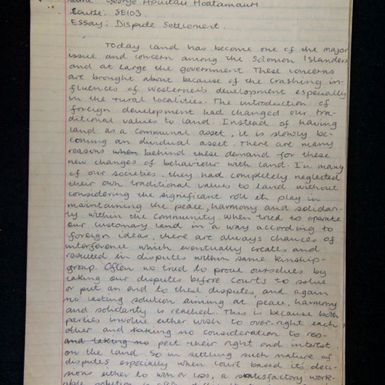 Name: George Houilau Hoatamauri
Course: SE103
Essay: Dispute Settlement.
Today land has become one of the major
issue and concern among the Solomon Islanders
and at large the government. These concerns
are brought about because of the crashing in-
fluences of Westernels development especially
in the rural localities. The introduction of
foreign development had changed our tra-
ditional values to land. Instead of having
land as a communal asset, it is slowly be-
coming an individual asset. There are many
reasons when behind these demand for these
new changes of behaviour with land. In many
of our societies, they had completely neglected
their own traditional values to land without
considering the significant roll it play in
maintaining the peace, harmony and solidari-
ty within the community. When tried to operate
our customary land in a way according to
foreign ideas, there are always chances of
interference which eventually creates and
resulted in disputes within same kinship-
group. Often we tried to prove ourselves by
taking our disputes before courts to solve
or put an end to these disputes, and again
no lasting solution aiming at peace, harmony
and solidarity is reached. This is because both
parties involve either wish to over-right each
other and taking no consideration to res-
pect their right and intrest
on the land. So in settling such nature of
disputes especially when court based its deci-
sions either to win or loss, a satisfactory work-